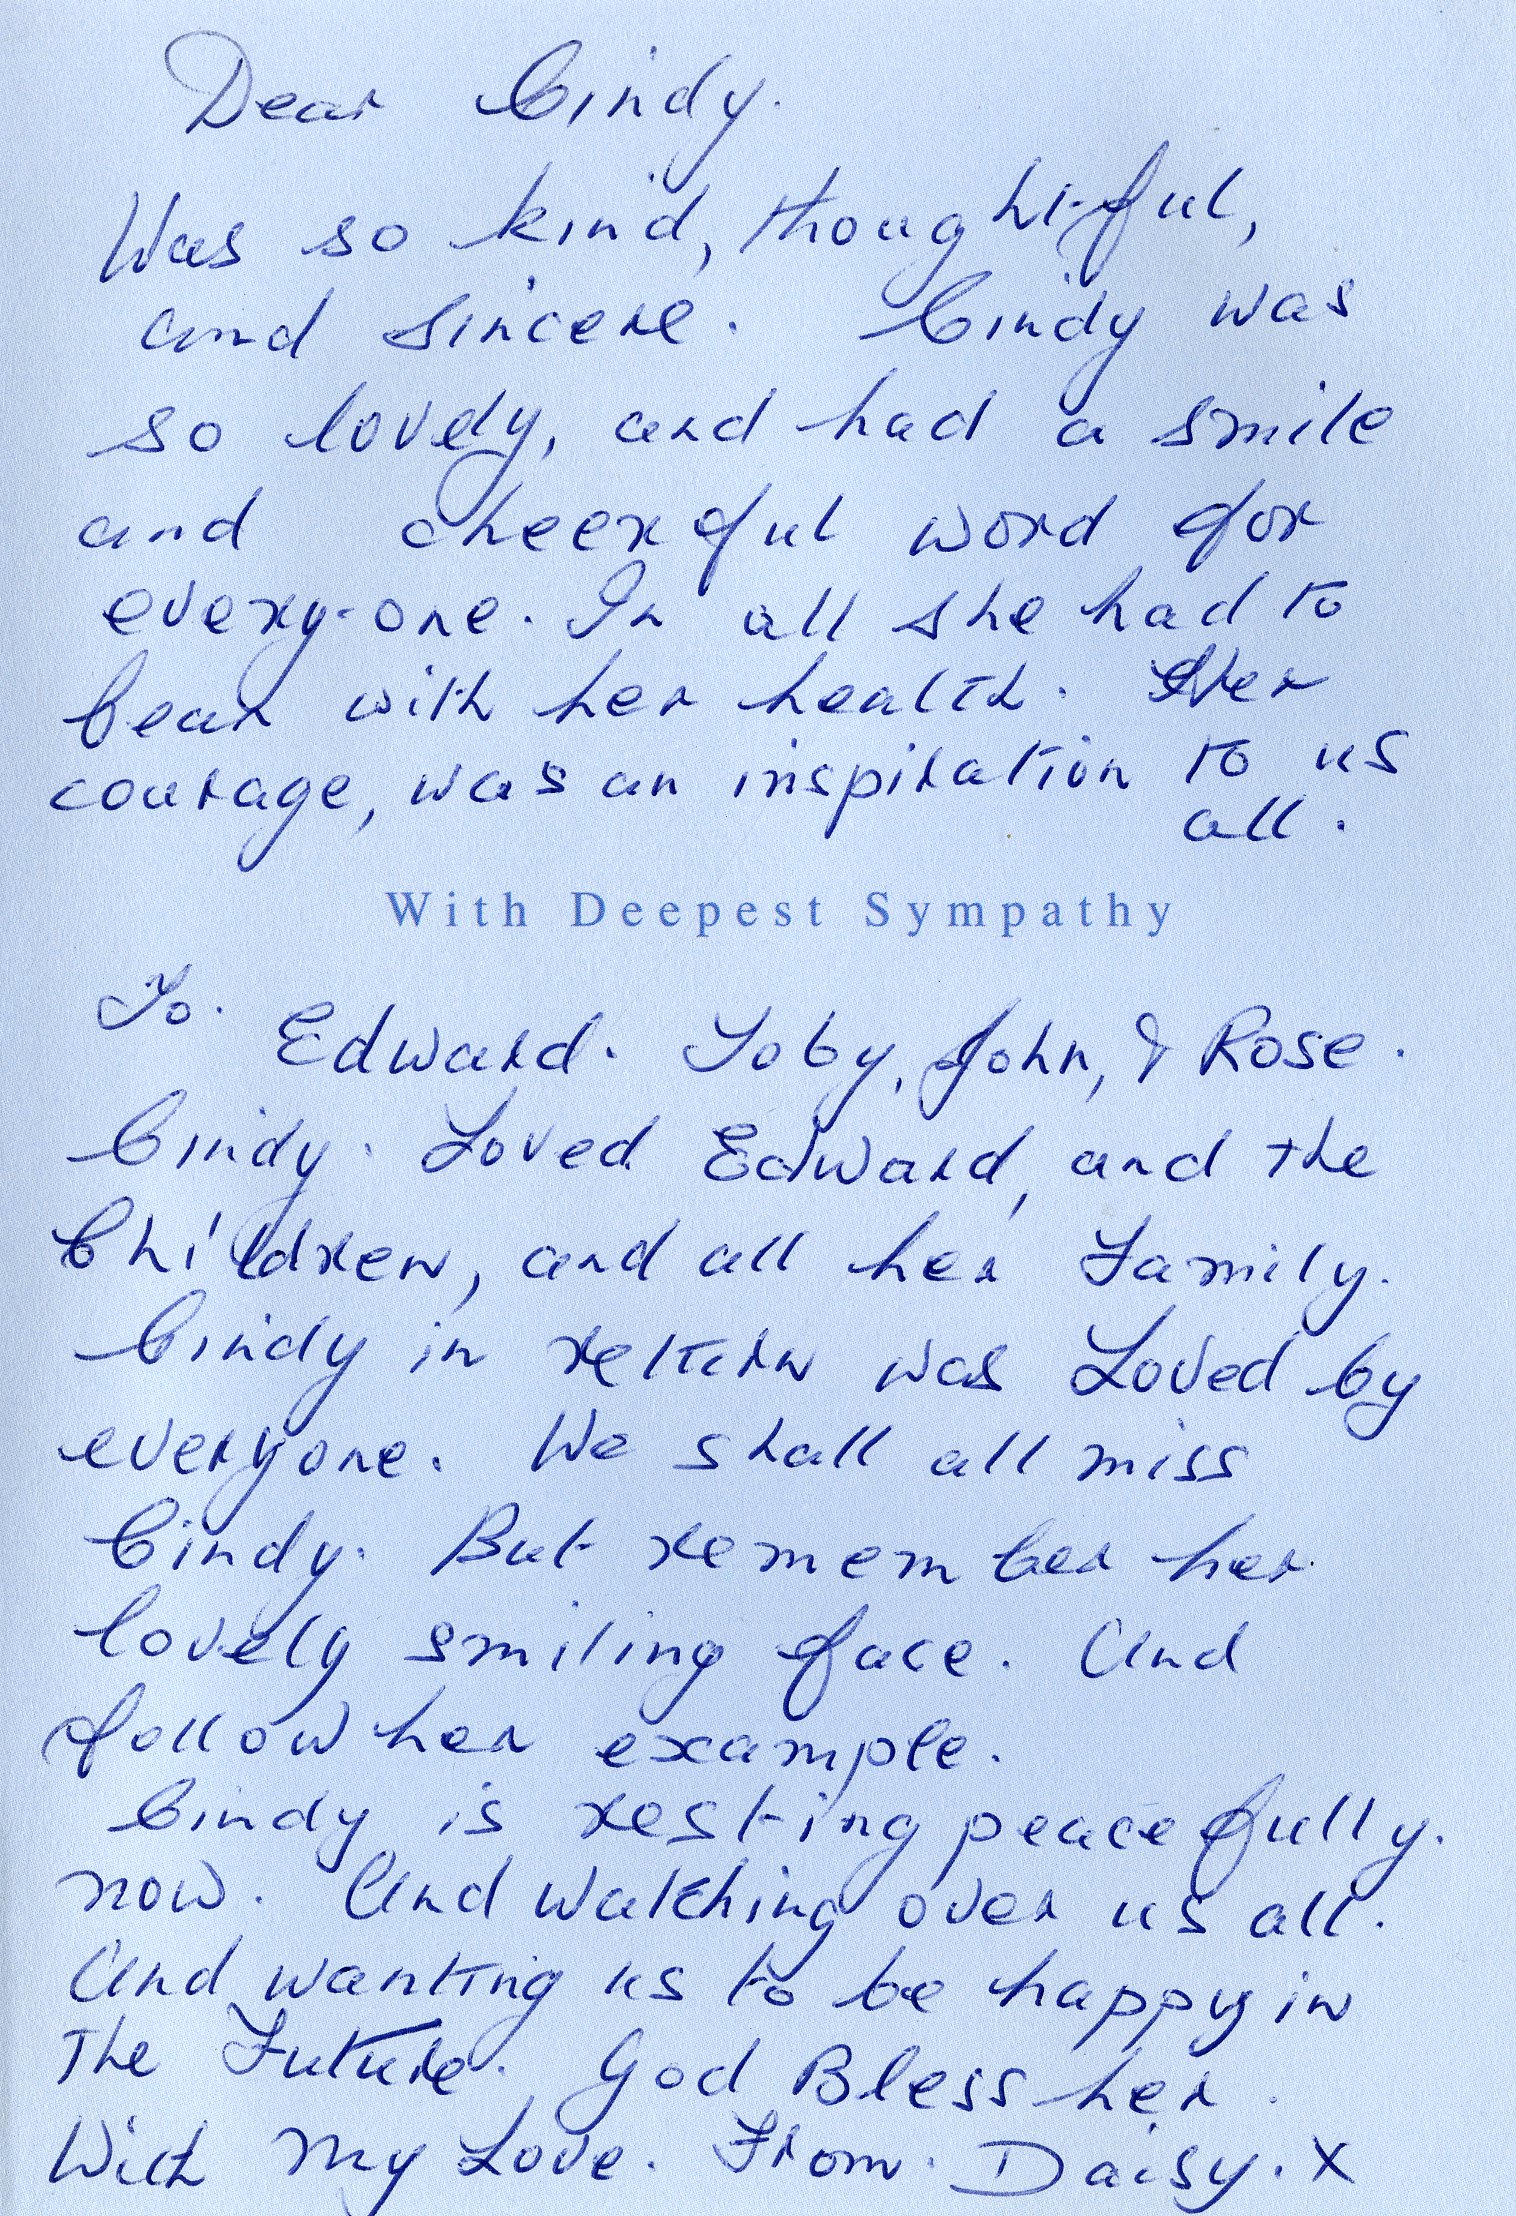 Dear Cindy.
Was so kind, thoughtful,
and sincere. Cindy was
so lovely, and had a smile
and cheerful word for
every-one. In all she had to
bear with her health. Her
courage, was an inspiration to us
all.
With Deepest Sympathy
To.
Edward. Toby, John, & Rose.
Cindy. Loved Edward, and the
Children, and all her Family.
Cindy in return was Loved by
everyone. We shall all miss
Cindy. But remember her
lovely smiling face. And
follow her example.
Cindy is resting peacefully.
now. And watching over us all.
And wanting us to be happy in
The Future. God Bless her.
With My Love. From. Daisy. X